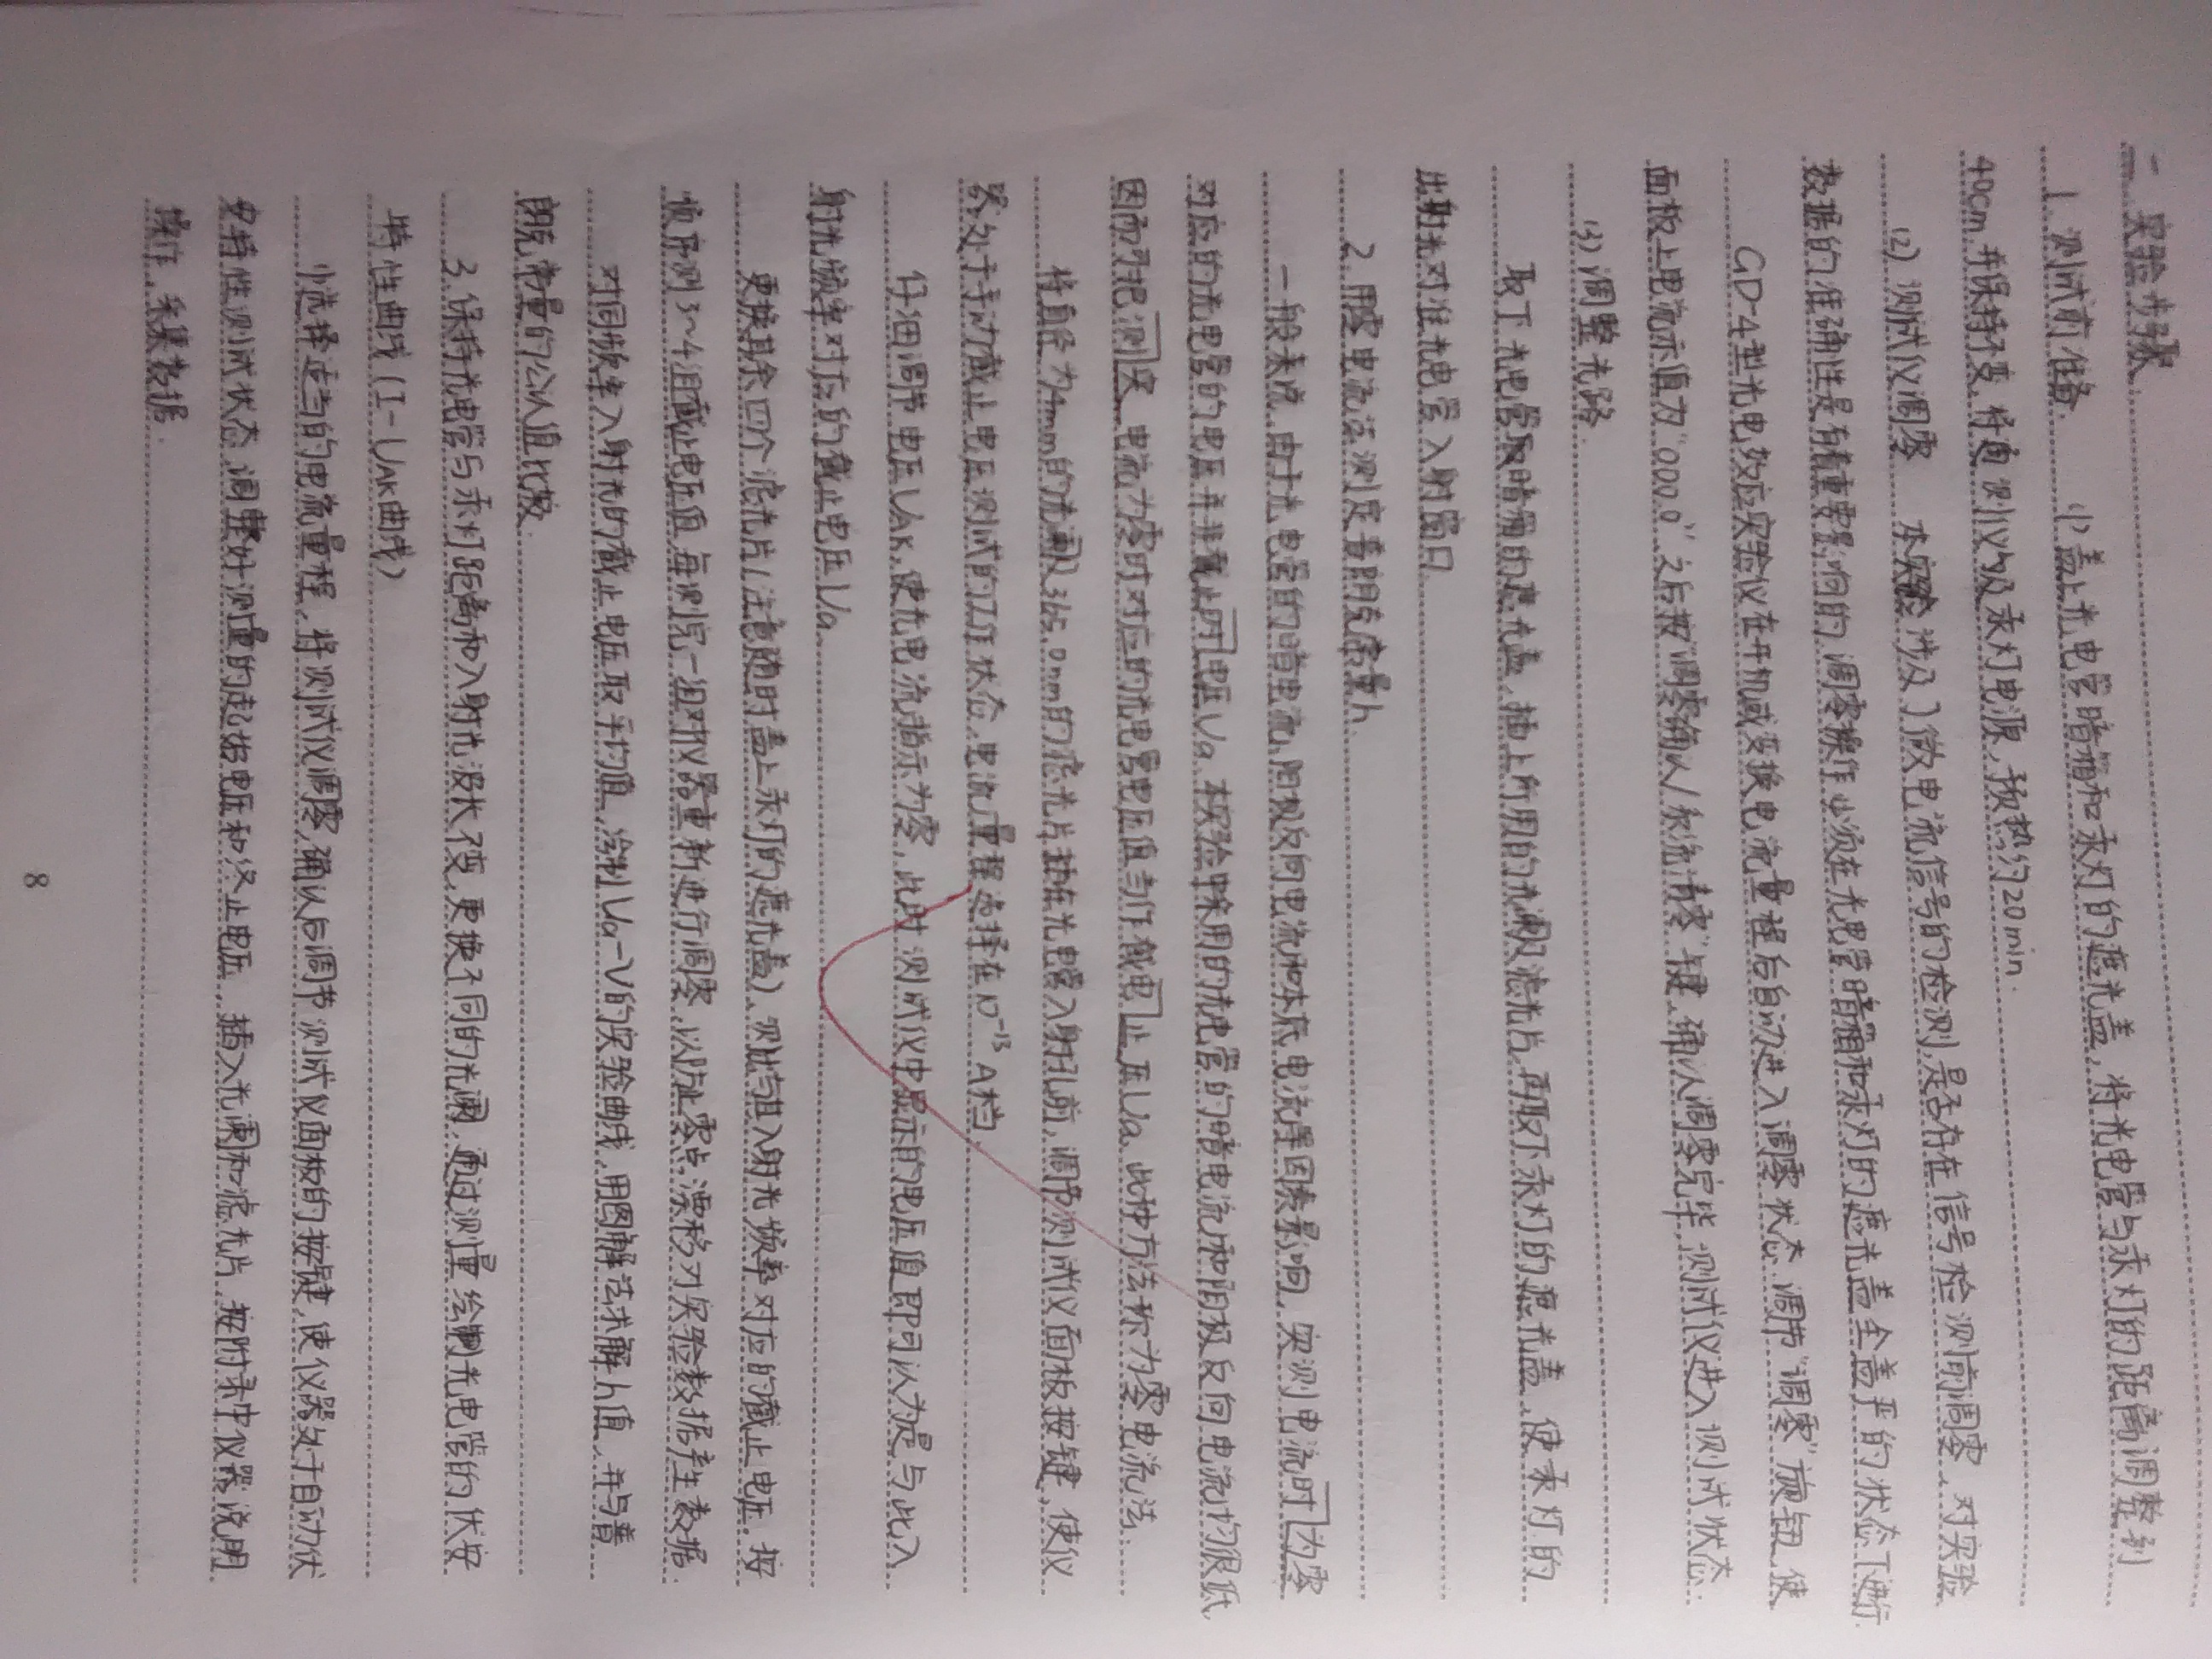 一 实验步骤
1. 测试前准备 (1) 盖上光电管暗箱和汞灯的遮光盖,将光电管与汞灯的距离调整到
40cm并保持不变,将通测仪及汞灯电源,预热约20min.
(2) 测试仪调零 本实验涉及了微电流信号的检测,是否存在信号检测前调零,对实验
数据的准确性是有重要影响的,调零操作必须在光电管暗箱和汞灯的遮光盖全盖严的状态下进行
GD-4型光电效应实验仪在开机或变换电流量程后自动进入调零状态 调节"调零"旋钮,使
面板上电流示值为"000.0",之后按"调零确认/系统清零"键,确认调零完毕,测试仪进入测试状态.
(3) 调整光路.
取下光电管暗箱的遮光盖,插上所用的光阑及滤光片,再取下汞灯的遮光盖,使汞灯的
出射光对准光电管入射窗口
2. 用零电流法测定普朗克常量h.
一般来说,由于光电管的暗电流,阳极反向电流和本底电流等因素影响,实测电流时为零
对应的光电管的电压并非截止时电压Ua.本实验中采用的光电管的暗电流和阳极反向电流均很低
因而可把测实电流为零时对应的光电管电压值当作截电止压Ua.此种方法称为零电流法.
将直径为4mm的光阑及365.0nm的滤光片装在光电管入射孔前,调节测试仪面板按键,使仪
器处于手动截止电压测试的工作状态,电流量程选择在10⁻¹³A档
仔细调节电压UAK,使光电流指示为零,此时测试仪中显示的电压值即可认为是与此入
射光频率对应的截止电压Ua.
更换其余四个滤光片(注意随时盖上汞灯的遮光盖),测出与其入射光频率对应的截止电压,按
顺序测3~4组截止电压值,每测完一组对仪器重新进行调零,以防止零点漂移对实验数据产生数据.
对同频率入射光的截止电压取平均值,绘制Ua-ν的实验曲线,用图解法求解h值,并与普
朗克常量的公认值比较.
3. 保持光电管与汞灯距离和入射光波长不变,更换不同的光阑,通过测量绘制光电管的伏安
特性曲线(I-UAK曲线)
(1)选择适当的电流量程,将测试仪调零,确认后调节测试仪面板的按键,使仪器处于自动伏
安特性测试状态,调整好测量的起始电压和终止电压,插入光阑和滤光片,按附录中仪器说明
操作,采集数据.
8